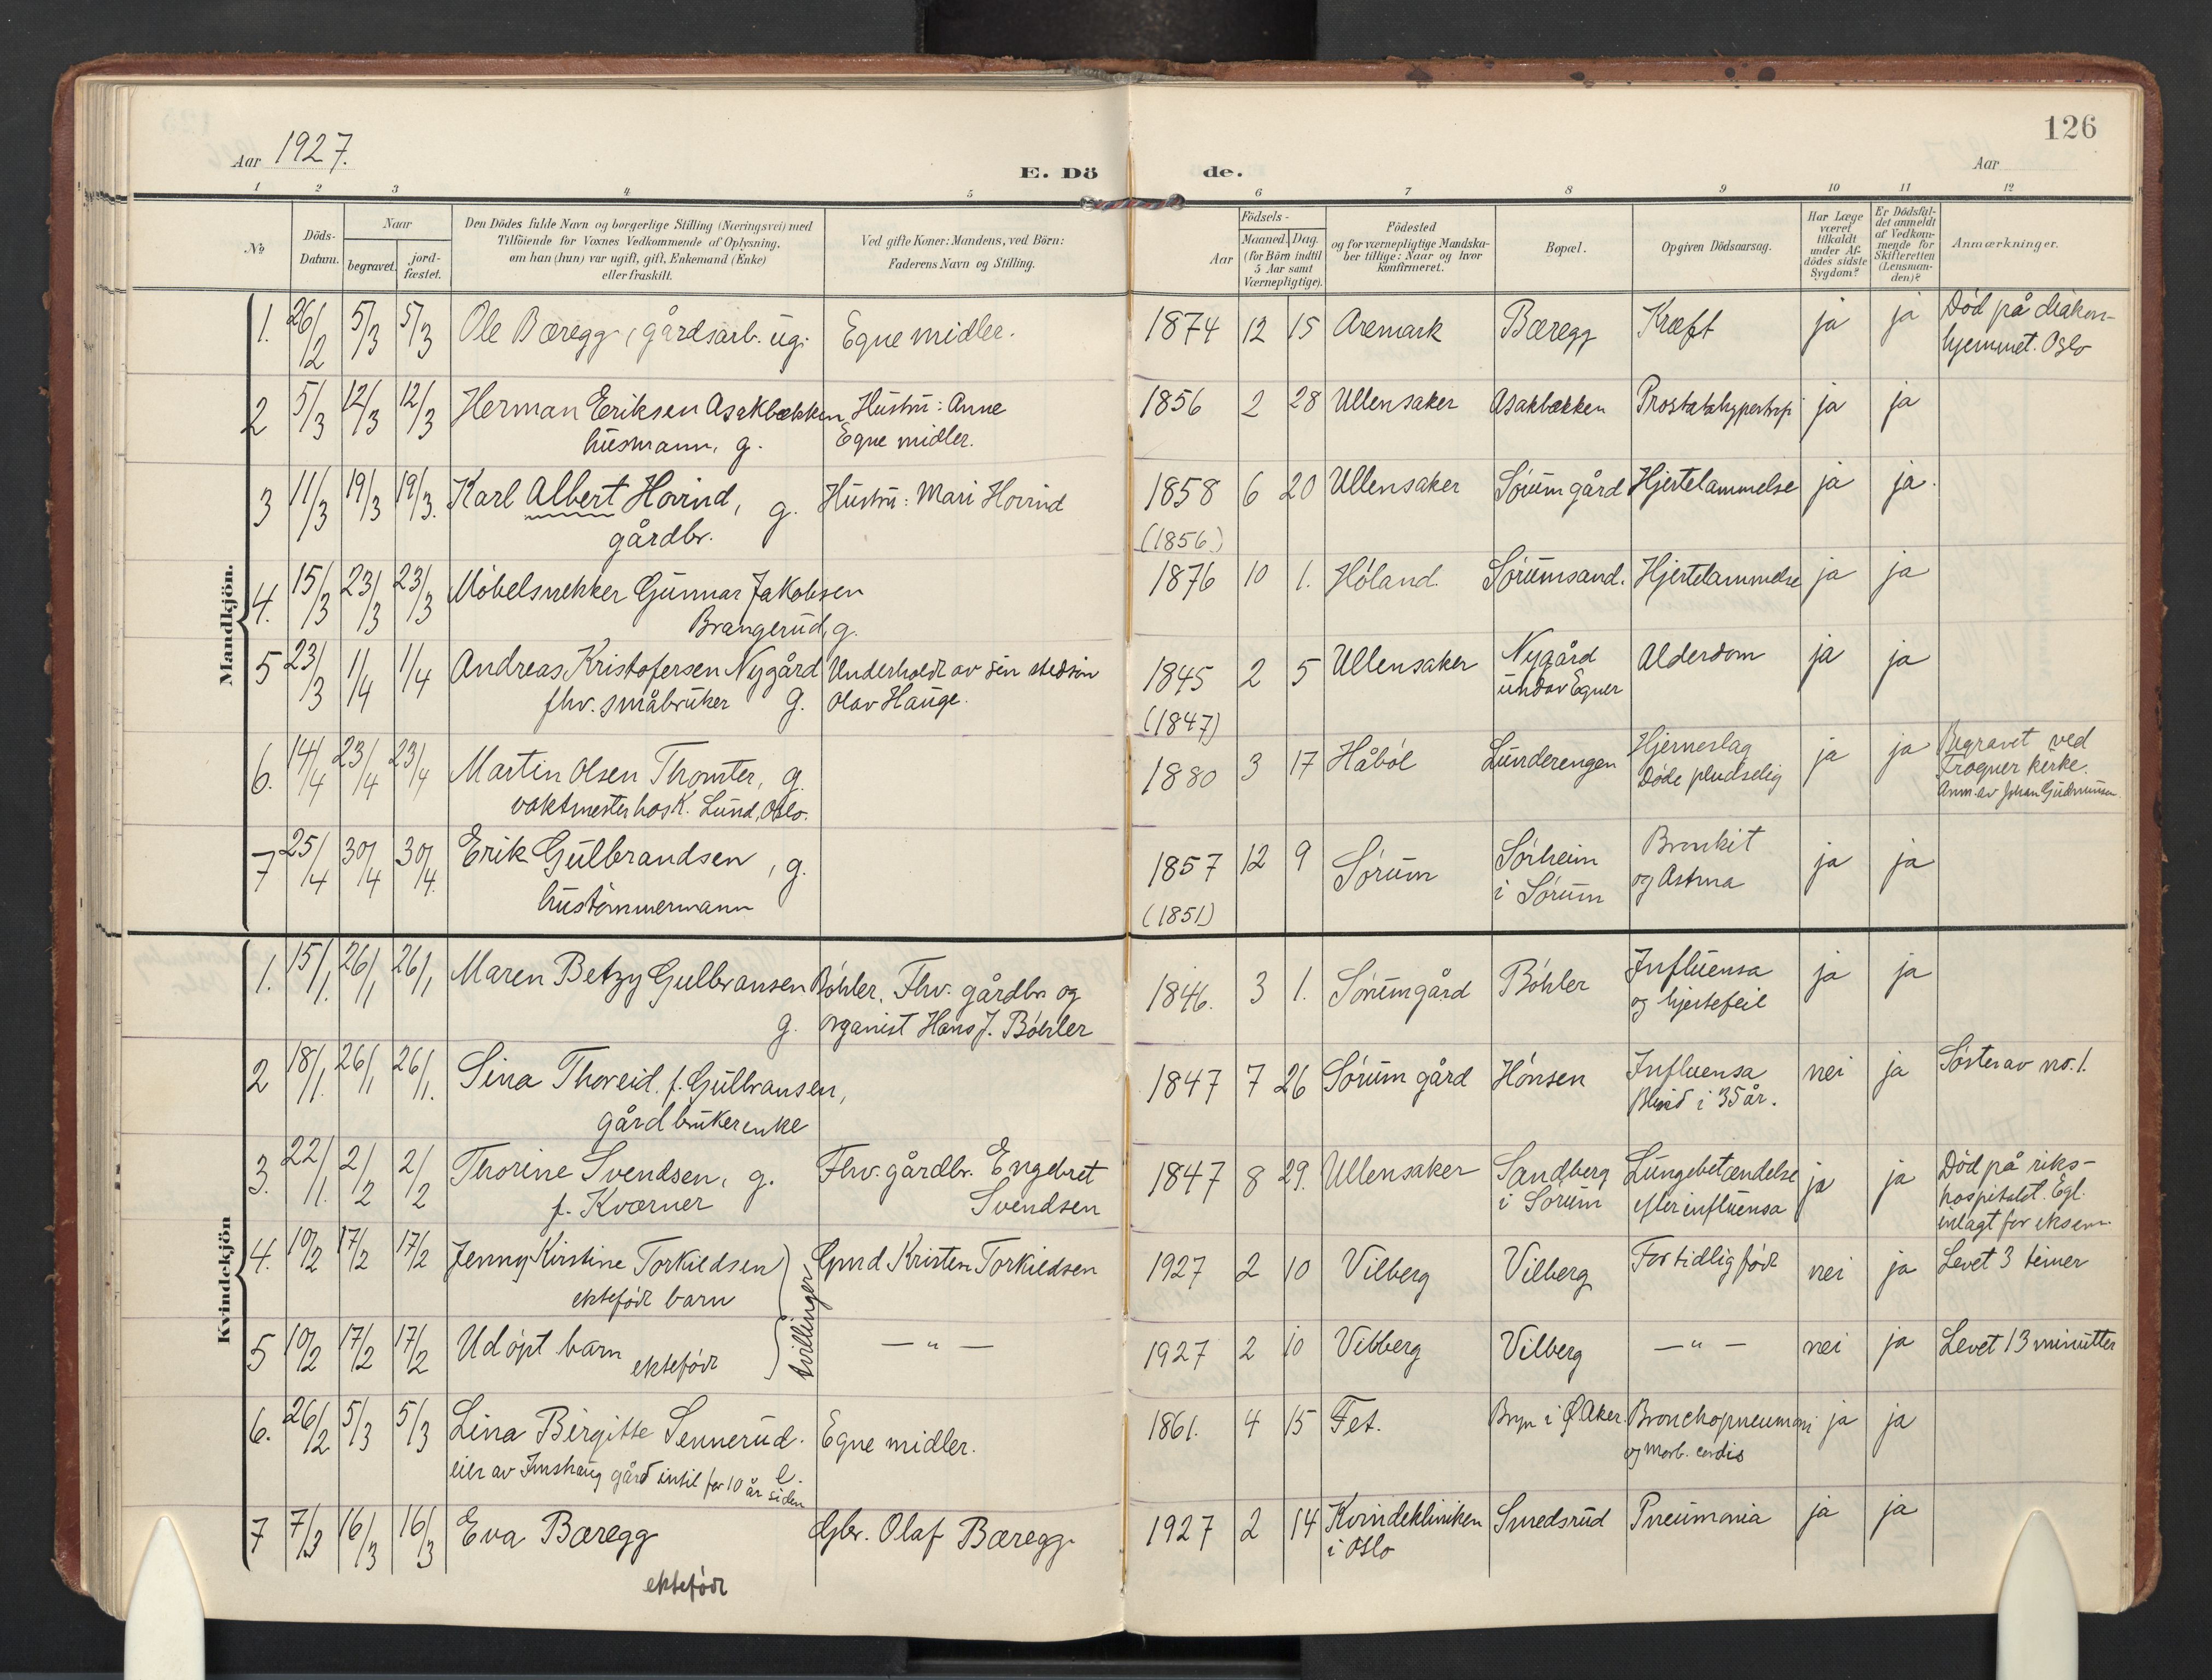 126
Aar 1927.
Aar
E. Dö de.
1 2 3 4 5 6 7 8 9 10 11 12
No
Döds-
Datum.
Naar
begravet.
jord-
fæstet.
Den Dödes fulde Navn og borgerlige Stilling (Næringsvei) med
Tilföiende for Voxnes Vedkommende af Oplysning,
om han (hun) var ugift, gift, Enkemand (Enke)
eller fraskilt.
Ved gifte Koner: Mandens, ved Börn:
Faderens Navn og Stilling.
Födsels-
Aar
Maaned. Dag.
(for Börn indtil
5 Aar samt
Værnepligtige).
Födested
og for værnepligtige Mandska-
ber tillige: Naar og hvor
konfirmeret.
Bopæl.
Opgiven Dödsaarsag.
Har Læge
været
tilkaldt
under Af-
dödes sidste
Sygdom?
Er Dödsfal-
det anmeldt
af Vedkom-
mende for
Skifteretten
(Lensman-
den)?
Anmærkninger.
Mandkjön.
1. 26/2 5/3 5/3 Ole Bæregg, gårdsarb. ug. Egne midler. 1874 12 15 Aremark Bæregg Kræft ja ja Död på diakon-
hjemmet. Oslo
2 5/3 12/3 12/3 Herman Eriksen Asakbækken Hustru: Anne 1856 2 28 Ullensaker Asakbækken Prostatahypertrofi ja ja
husmann, g. Egne midler.
3 11/3 19/3 19/3. Karl Albert Hovind, g. Hustru: Mari Hovind 1858 6 20 Ullensaker Sørum gård Hjertelammelse ja ja.
gårdbr. (1856)
4. 15/3 23/3 23/3 Møbelsnekker Gunnar Jakobsen 1876 10 1. Høland. Sørumsand. Hjertelammelse ja ja
Brangerud, g.
5 23/3 1/4 1/4 Andreas Kristofersen Nygård Underholdt av sin stedsøn 1845 2 5 Ullensaker Nygård Alderdom ja ja
fhv. småbruker g. Olav Hauge. (1847) under Egner
6. 14/4 23/4 23/4 Martin Olsen Thomter, g. 1880 3 17 Håbøl Lunderengen Hjerneslag ja ja Begravet ved
vaktmester hos K. Lund, Oslo. Døde pludselig Frogner kirke.
Anm. av Johan Gudmunsen.
7 25/4 30/4 30/4. Erik Gulbrandsen, g. 1857 12 9 Sørum Sørheim Bronkit ja ja
hustømmermann (1851) i Sørum og Astma
Kvindekjön
1. 15/1. 26/1 26/1 Maren Betzy Gulbransen Bøhler. Fhv. gårdbr. og 1846. 3 1. Sørumgård Bøhler Influensa ja ja
g. organist Hans J. Bøhler og hjertefeil
2 18/1. 26/1 26/1. Sina Thoreid. f. Gulbransen, 1847 7 26 Sørum gård Hønsen Influensa nei ja Søster av no. 1.
gårdbrukerenke Blind i 35 år.
3. 22/1. 2/2 2/2 Thorine Svendsen, g. Fhv. gårdbr. Engebret 1847 8 29. Ullensaker Sandberg Lungebetændelse ja ja Död på riks-
f. Kværner Svendsen i Sørum efter influensa hospitalet. Egl.
inlagt for eksem.
4. 10/2 17/2 17/2 Jenny Kirstine Torkildsen Gmd Kristen Torkildsen 1927 2 10 Vilberg Vilberg For tidlig født nei ja Levet 3 timer
ektefødt barn
tvillinger
5 10/2 17/2 17/2 Udøpt barn — " — 1927 2 10 Vilberg Vilberg — " — nei ja Levet 13 minutter
ektefødt
6. 26/2 5/3 5/3 Lina Birgitte Sennerud. Egne midler. 1861. 4 15 Fet. Bryn i Ø. Aker. Bronchopneumoni ja ja
eier av Imshaug gård intil for 10 år siden e. og Morb. cordis
7 7/3 16/3 16/3 Eva Bæregg Gbr. Olaf Bæregg. 1927 2 14 Kvindekliniken Smedsrud Pneumonia ja ja
ektefødt i Oslo